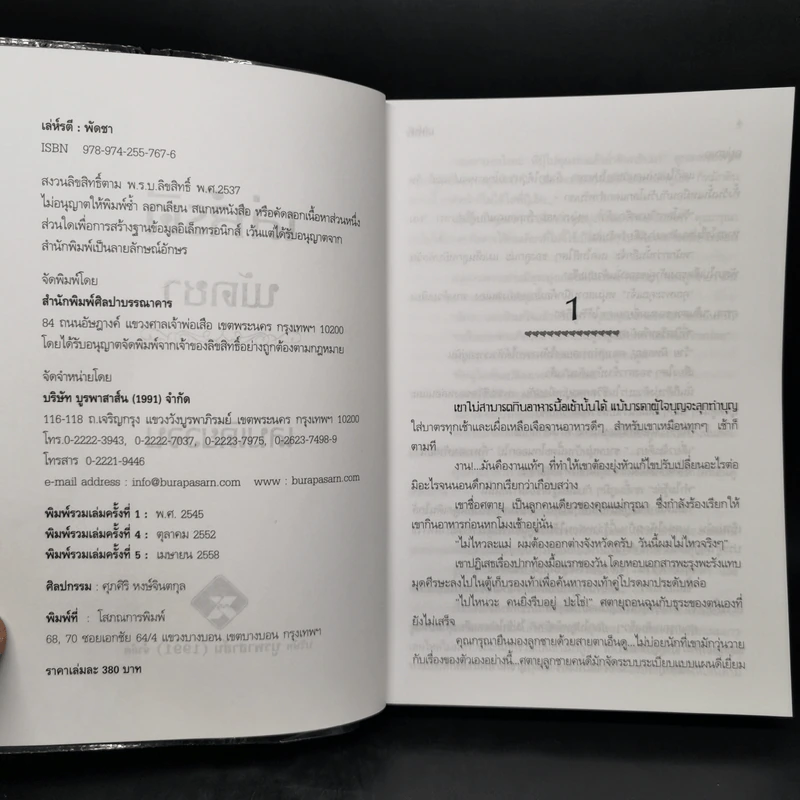 เล่ห์รตี : พัดชา
ISBN 978-974-255-767-6
สงวนลิขสิทธิ์ตาม พ.ร.บ.ลิขสิทธิ์ พ.ศ.2537
ไม่อนุญาตให้พิมพ์ซ้ำ ลอกเลียน สแกนหนังสือ หรือคัดลอกเนื้อหาส่วนหนึ่ง
ส่วนใดเพื่อการสร้างฐานข้อมูลอิเล็กทรอนิกส์ เว้นแต่ได้รับอนุญาตจาก
สำนักพิมพ์เป็นลายลักษณ์อักษร
จัดพิมพ์โดย
สำนักพิมพ์ศิลปาบรรณาคาร
84 ถนนอัษฎางค์ แขวงศาลเจ้าพ่อเสือ เขตพระนคร กรุงเทพฯ 10200
โดยได้รับอนุญาตจัดพิมพ์จากเจ้าของลิขสิทธิ์อย่างถูกต้องตามกฎหมาย
จัดจำหน่ายโดย
บริษัท บูรพาสาส์น (1991) จำกัด
116-118 ถ.เจริญกรุง แขวงวังบูรพาภิรมย์ เขตพระนคร กรุงเทพฯ 10200
โทร.0-2222-3943, 0-2222-7037, 0-2223-7975, 0-2623-7498-9
โทรสาร 0-2221-9446
e-mail address : info@burapasarn.com www : burapasarn.com
พิมพ์รวมเล่มครั้งที่ 1 : พ.ศ. 2545
พิมพ์รวมเล่มครั้งที่ 4 : ตุลาคม 2552
พิมพ์รวมเล่มครั้งที่ 5 : เมษายน 2558
ศิลปกรรม : ศุภศิริ หงษ์จินตกุล
พิมพ์ที่ : โสภณการพิมพ์
68, 70 ซอยเอกชัย 64/4 แขวงบางบอน เขตบางบอน กรุงเทพฯ
ราคาเล่มละ 380 บาท
1
เขาไม่สามารถกินอาหารมื้อเช้านั้นได้ แม้มารดาผู้ใจบุญจะลุกทำบุญ
ใส่บาตรทุกเช้าและเผื่อเหลือเจือจานอาหารดีๆ สำหรับเขาเหมือนทุกๆ เช้าก็
ตามที
งาน!...มันคืองานแท้ๆ ที่ทำให้เขาต้องยุ่งหัวแก้ไขปรับเปลี่ยนอะไรต่อ
มิอะไรจนนอนดึกมากเรียกว่าเกือบสว่าง
เขาชื่อศตายุ เป็นลูกคนเดียวของคุณแม่กรุณา ซึ่งกำลังร้องเรียกให้
เขากินอาหารก่อนหกโมงเช้าอยู่นั่น
“ไม่ไหวละแม่ ผมต้องออกต่างจังหวัดครับ วันนี้ผมไม่ไหวจริงๆ”
เขาปฏิเสธเรื่องปากท้องมื้อแรกของวัน โดยหอบเอกสารพะรุงพะรังแทบ
มุดศีรษะลงไปในตู้เก็บรองเท้าเพื่อค้นหารองเท้าคู่โปรดมาประดับหล่อ
“ไปไหนวะ คนยิ่งรีบอยู่ ปะโธ่!” ศตายุถอนฉุนกับธุระของตนเองที่
ยังไม่เสร็จ
คุณกรุณายืนมองลูกชายด้วยสายตาเอ็นดู...ไม่บ่อยนักที่เขามักวุ่นวาย
กับเรื่องของตัวเองอย่างนี้...ศตายุลูกชายคนดีมักจัดระบบระเบียบแบบแผนดีเยี่ยม